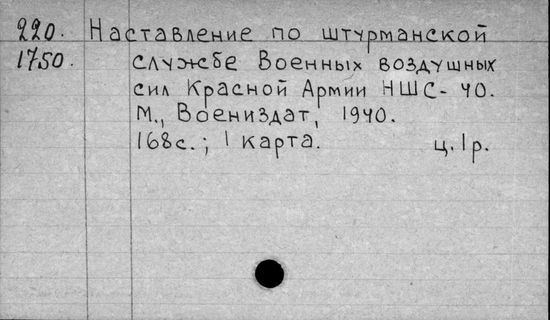 220. Наставление по штурманской
1750. службе Военных воздушных
сил Красной Армии НШС-40.
М., Воениздат, 1940.
168с.; 1 карта. ц. 1 р.